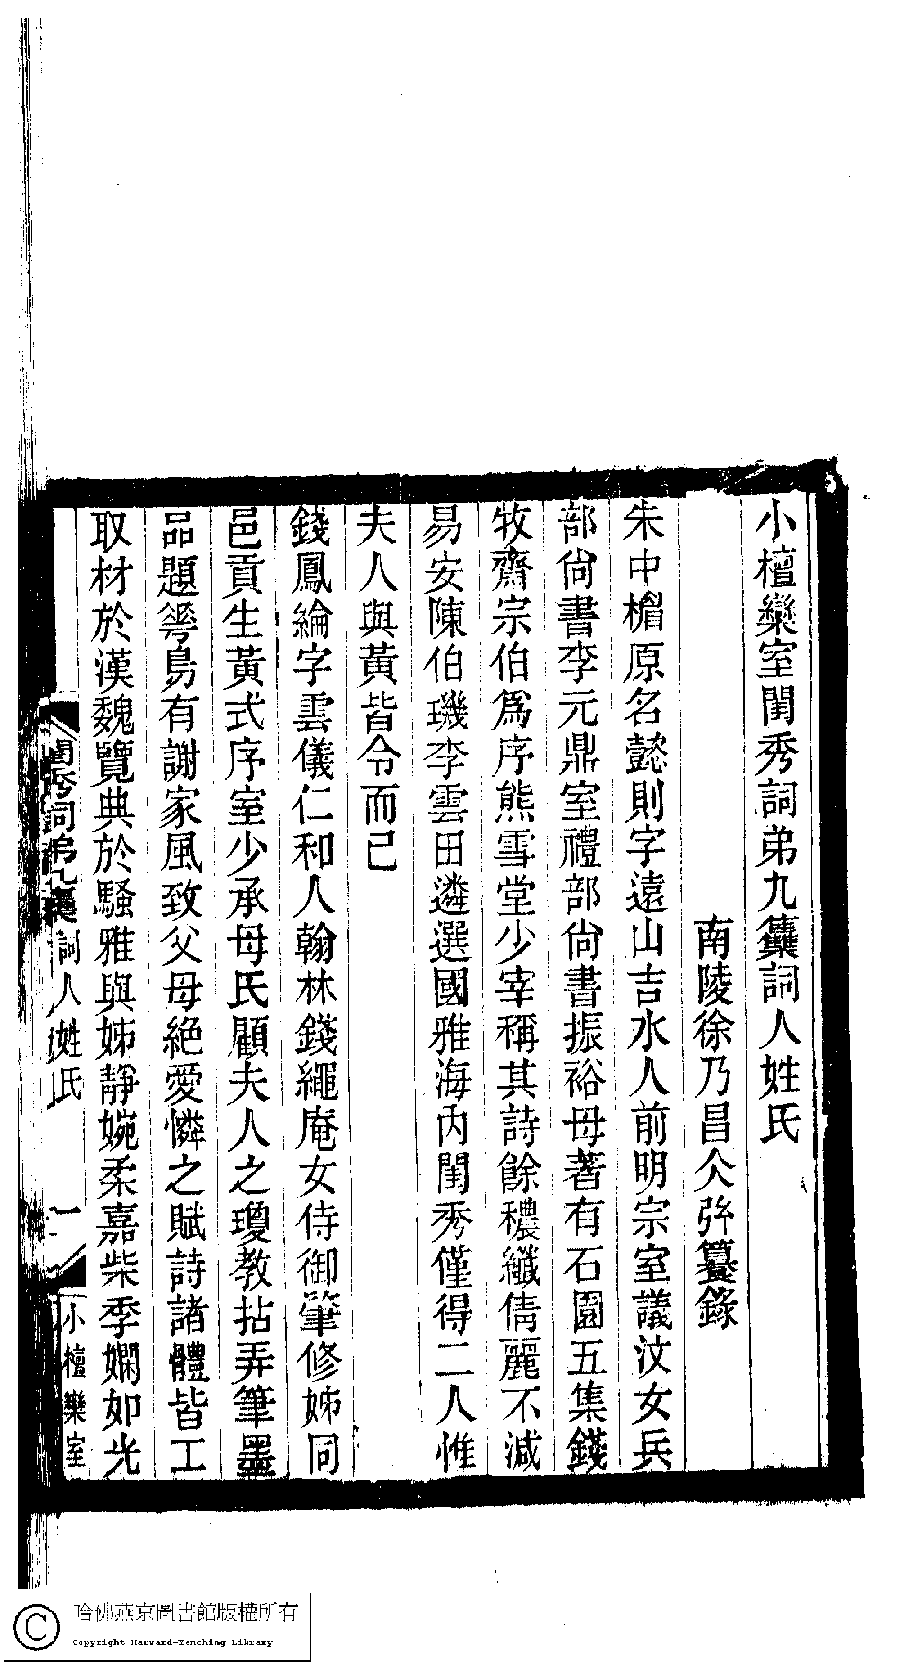 小檀欒室閨秀詞弟九集詞人姓氏
南陵徐乃昌仌弜纂錄
朱中楣原名懿則字遠山吉水人前明宗室議汶女兵
部尙書李元鼎室禮部尙書振裕母著有石園五集錢
牧齋宗伯爲序熊雪堂少宰稱其詩餘穠纖倩麗不減
易安陳伯璣李雲田遴選國雅海內閨秀僅得二人惟
夫人與黃皆令而已
錢鳳綸字雲儀仁和人翰林錢繩庵女侍御肇修姊同
邑貢生黃式序室少承母氏顧夫人之瓊教拈弄筆墨
品題萼鳥有謝家風致父母絕愛憐之賦詩諸體皆工
取材於漢魏覽典於騷雅與姊靜婉柔嘉柴季嫻如光
閨秀詞弟九集詞人姓氏
一
小檀欒室
哈佛燕京圖書館版權所有
Copyright Harvard-Yenching Library